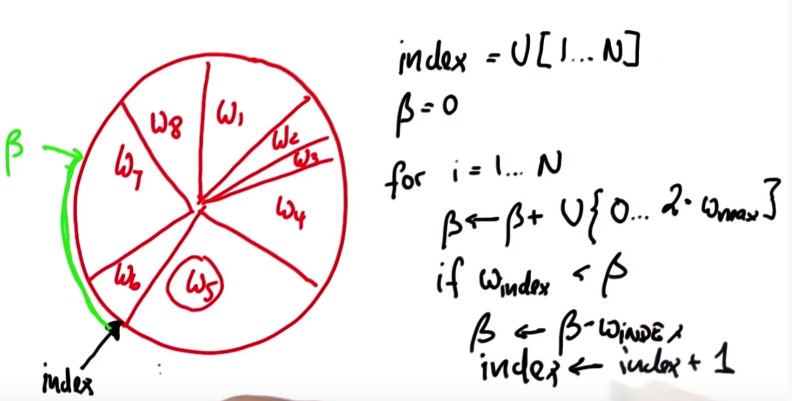 β
ω8
ω1
ω2
ω3
ω7
ω4
ω6
ω5
index
index = U[1...N]
β=0
for i=1... N
β←β+ U{0... 2·ωmax}
if ωindex < β
β ← β-ωINDEX
index ← index + 1